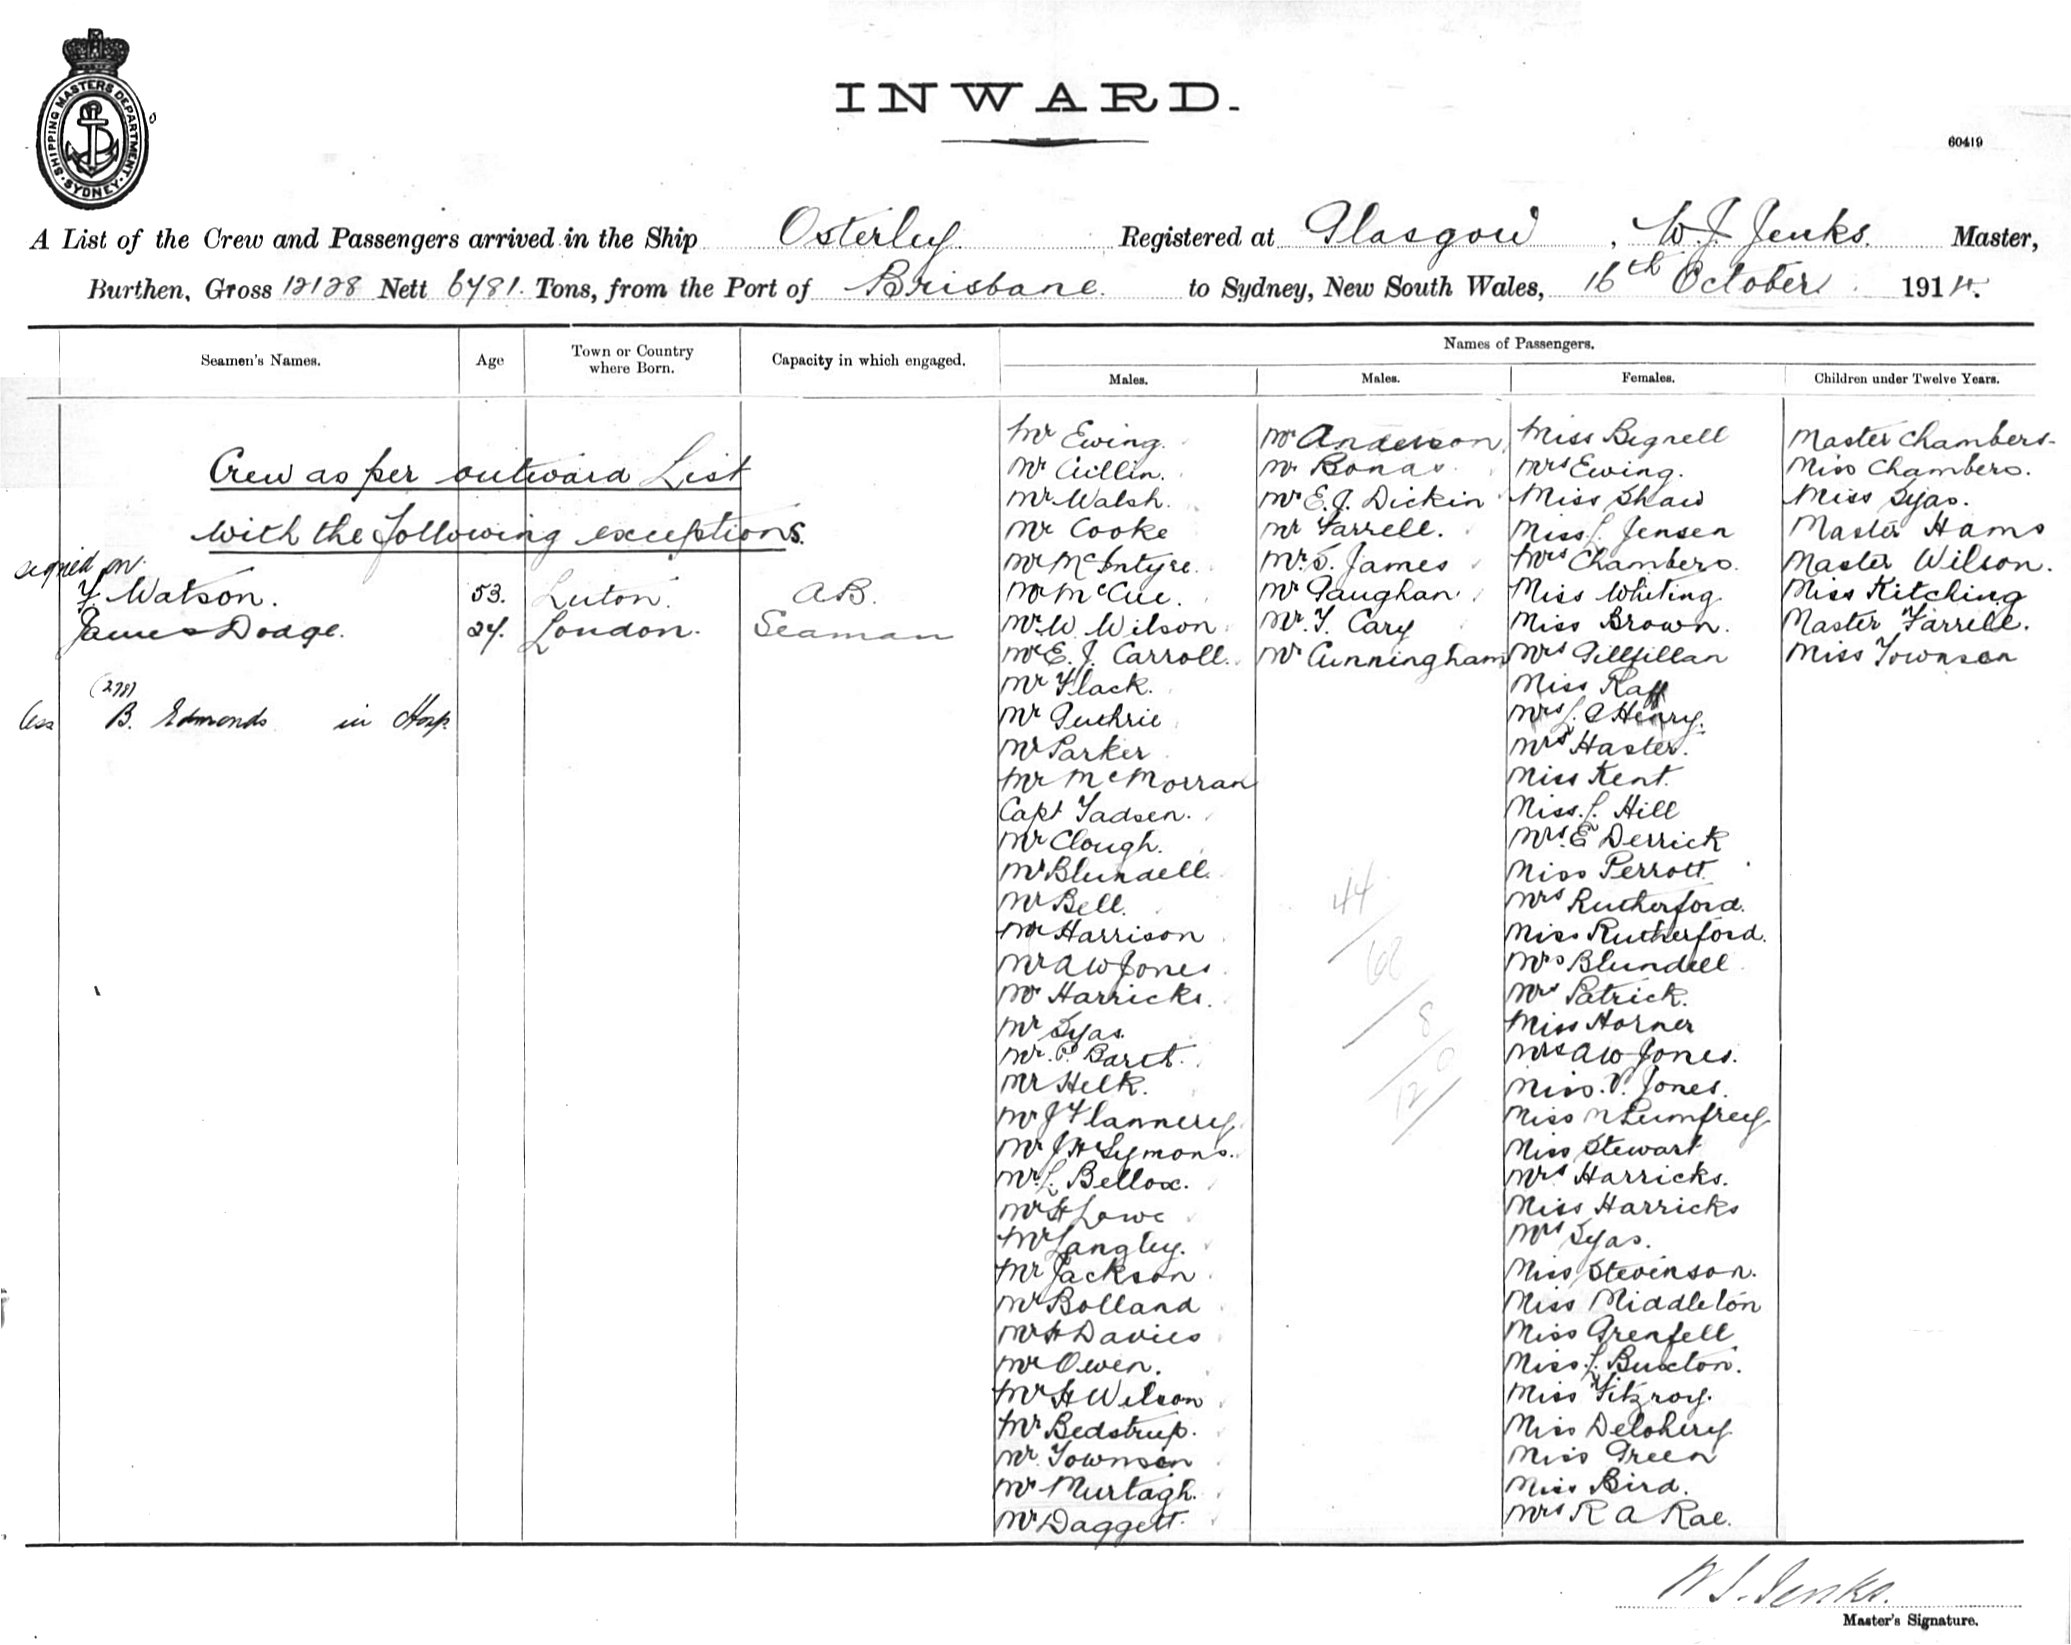 SHIPPING MASTERS DEPARTMENT
SYDNEY
INWARD.
60419
A List of the Crew and Passengers arrived in the Ship Osterley Registered at Glasgow, W.J. Jenks. Master,
Burthen, Gross 12128 Nett 6781. Tons, from the Port of Brisbane. to Sydney, New South Wales, 16th October 1914.
Seamen's Names.
Age
Town or Country
where Born.
Capacity in which engaged.
Names of Passengers.
Males.
Males.
Females.
Children under Twelve Years.
Crew as per outward List
with the following exceptions.
signed on.
F. Watson. 53. Luton. A.B.
James Dodge. 24. London. Seaman
(278)
less B. Edmonds in Hosp.
Mr Ewing.
Mr Cullin.
Mr Walsh.
Mr Cooke
Mr McIntyre.
Mr McCue.
Mr W. Wilson
Mr E. J. Carroll.
Mr Flack.
Mr Guthrie
Mr Parker
Mr McMorran
Capt Tadsen.
Mr Clough.
Mr Blundell.
Mr Bell.
Mr Harrison
Mr A W Jones.
Mr Harricks.
Mr Syas.
Mr. P. Barct.
Mr Helk.
Mr J Flannery.
Mr J H Symons.
Mr. L. Bellox.
Mr H Lowe
Mr Langley.
Mr Jackson
Mr Bolland
Mr H Davies
Mr Owen.
Mr H Wilson
Mr Bedstrup.
Mr. Townson
Mr Murtagh.
Mr Daggett.
Mr Anderson
Mr Bonas.
Mr E. J. Dickin
Mr Farrell.
Mr. S. James
Mr Gaughan
Mr. F. Cary
Mr Cunningham
44
68
8
0
120
Miss Bignell
Mrs Ewing.
Miss Shaw
Miss. L. Jensen
Mrs Chambers.
Miss Whiting.
Miss Brown.
Mrs Gillfillan
Miss Raff
Mrs L. C Henry.
Mrs Haster.
Miss Kent.
Miss. L. Hill
Mrs. E Derrick
Miss Perrott.
Mrs Rutherford.
Miss Rutherford.
Mrs Blundell
Mrs Patrick.
Miss Horner
Mrs A W Jones.
Miss. V. Jones.
Miss N Pumfrey
Miss Stewart
Mrs Harricks.
Miss Harricks
Mrs Syas.
Miss Stevenson.
Miss Middleton
Miss Grenfell
Miss. L. Buxton.
Miss Fitzroy.
Miss Delohery
Miss Green
Miss Bird.
Mrs R A Rae.
Master Chambers
Miss Chambers.
Miss Syas.
Master Hams
Master Wilson.
Miss Kitching
Master Farrell.
Miss Townson
W. J. Jenks.
Master's Signature.